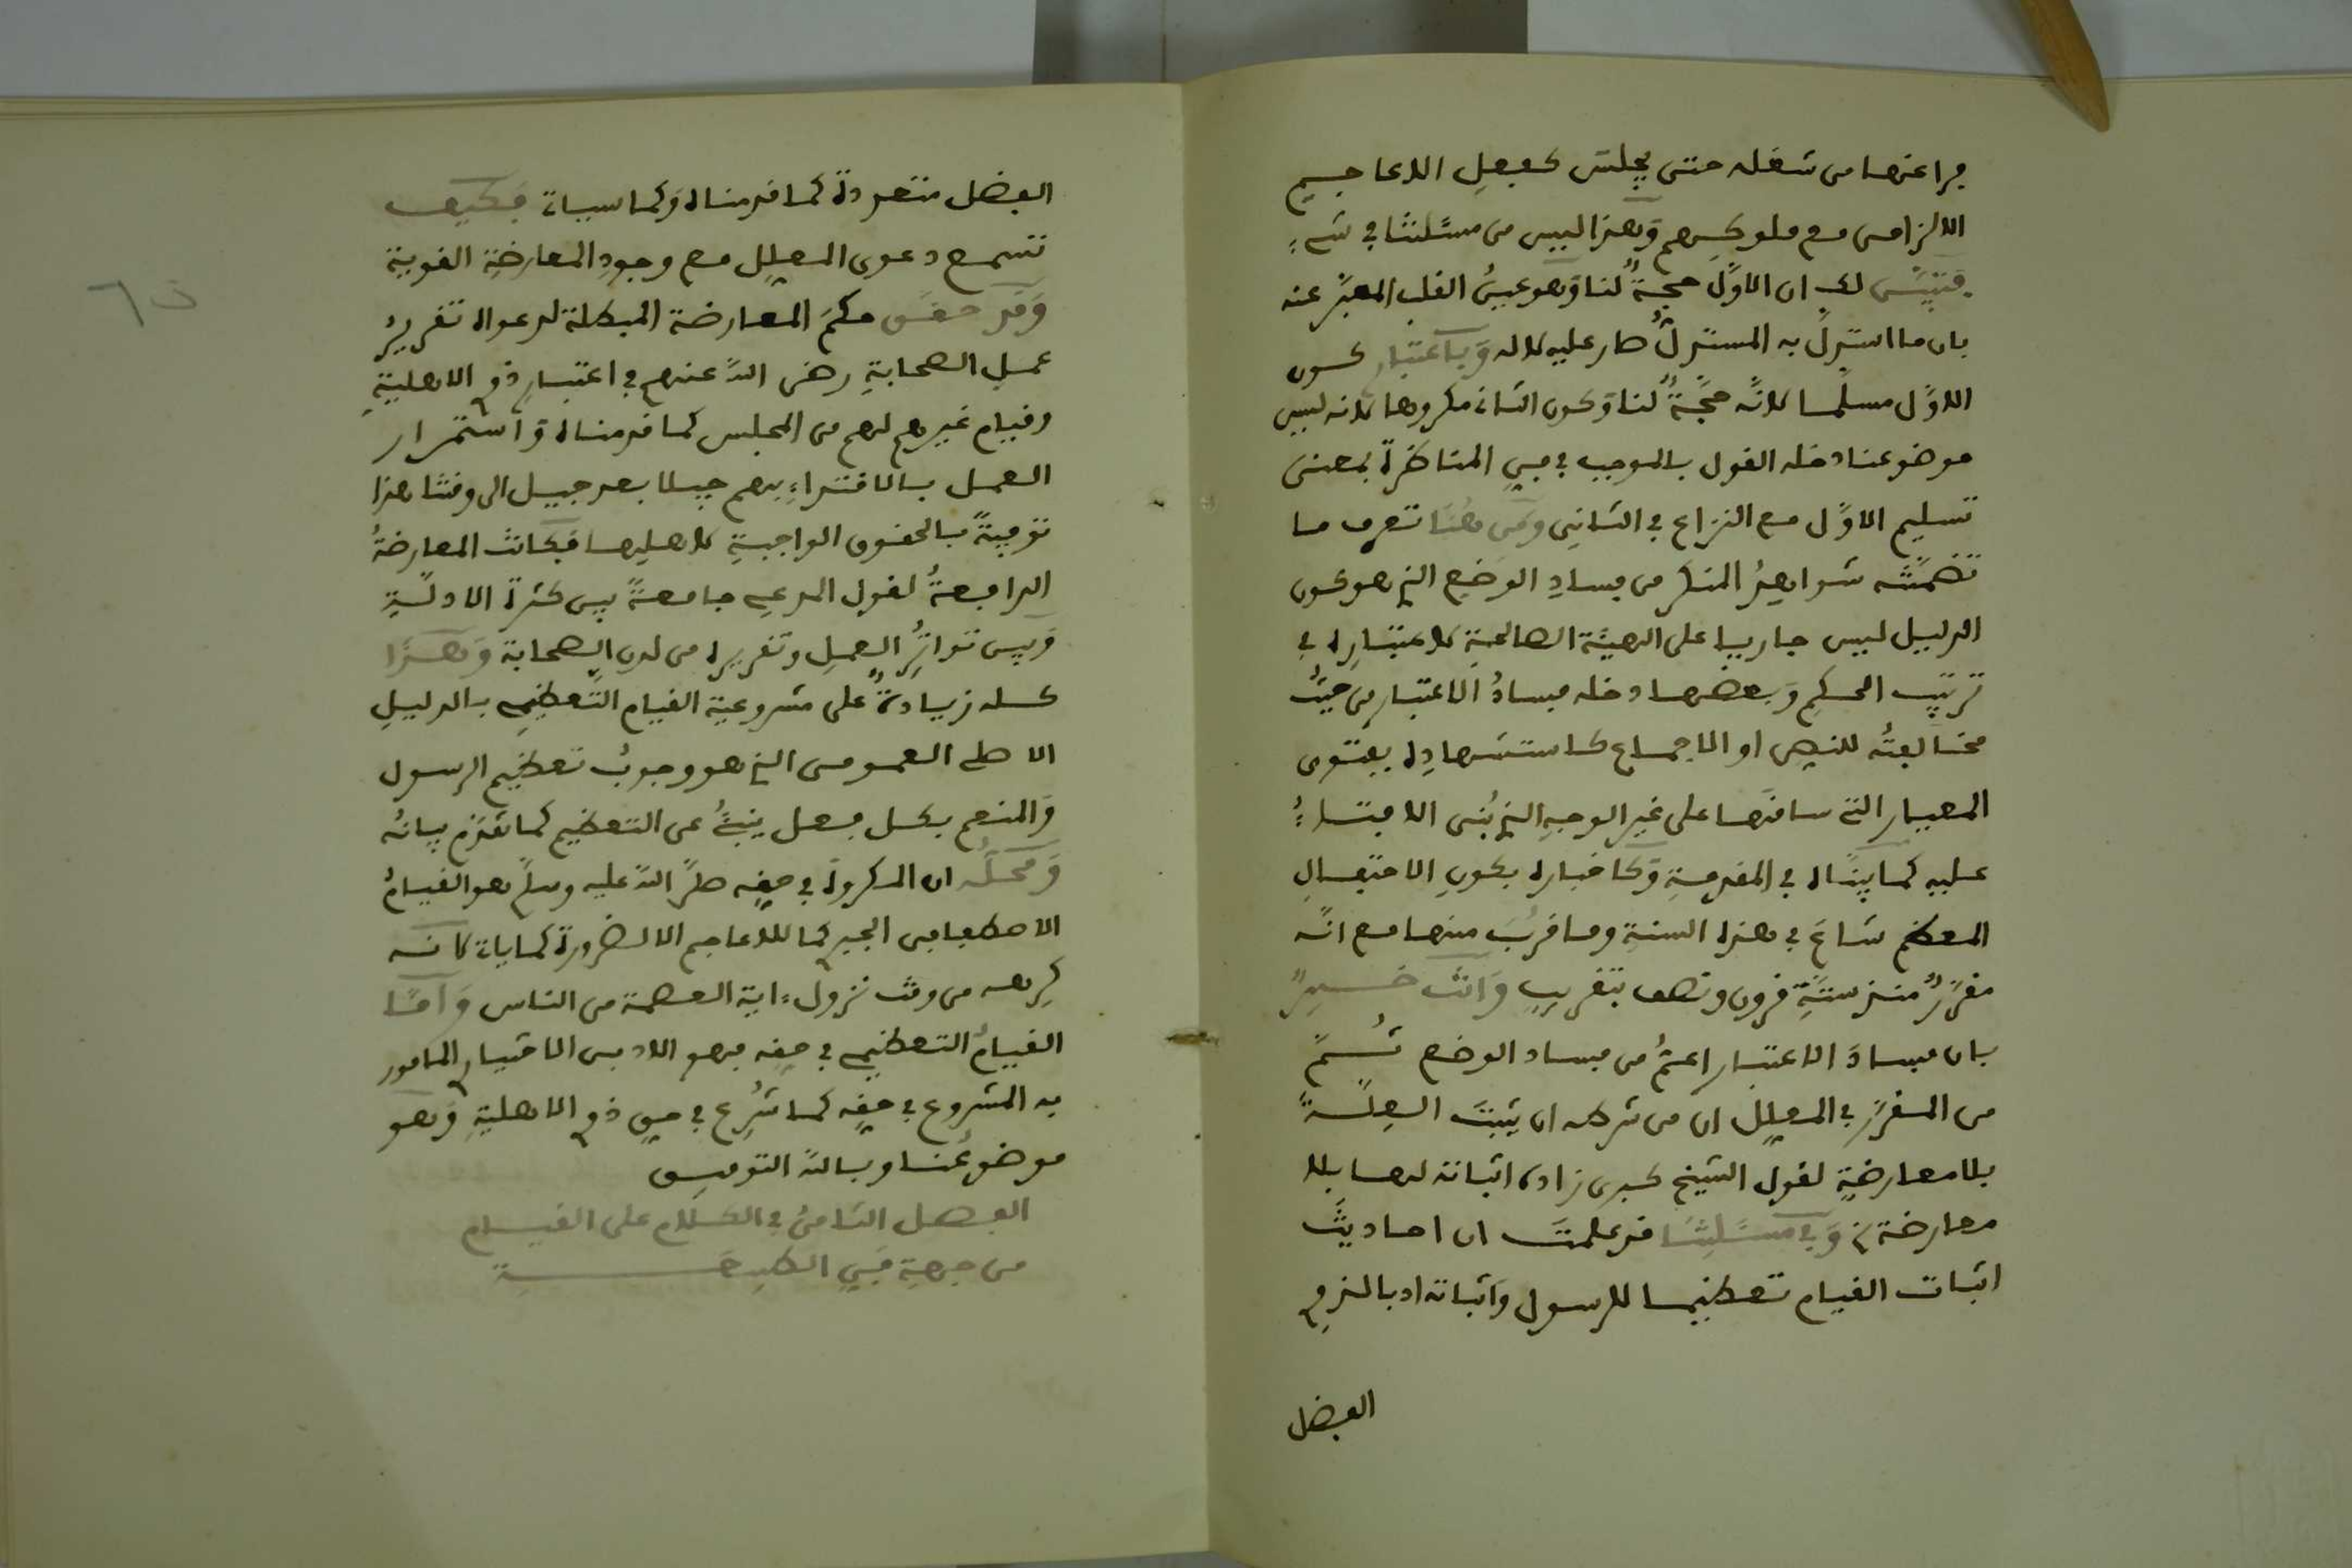 فراغها من شغله حتى يجلس كفعل الاعاجيم
الالزامى مع ملوكهم وهذا ليس من مسئلتنا في شيء
فتبيّن لك ان الاوّل حجةٌ لنا وهو عينُ القلب المعبَّر عنه
بان ما استدلّ به المستدلُّ صار عليه لا له وباعتبار كون
الاوّل مسلّما لانّه حجّةٌ لنا وكون الثاني مكروها لانه ليس
موضوعنا دخله القول بالموجب في فنِ المناظرة بمعنى
تسليم الاوّل مع النزاع في الثانِى ومن هنا تعرف ما
تضمَّنَته شواهدُ المنكر من فسادِ الوضعِ الذي هو كون
الدليل ليس جاريا على الهيئة الصالحةِ لاعتبارِه في
ترتيب الحكمِ وبعضها دخله فسادُ الاعتبار من حيثُ
مخالفتُه للنصِ او الاجماع كاستشهادِه بفتوى
المعيار التي ساقها على غير الوجهِ الذي بُنى الافتاءُ
عليه كما بينّاه في المقدمةِ وكاخباره بكونِ الاحتفالِ
المعظم شاعَ في هذه السنةِ وما قرُبَ منها مع انّه
مقرَّرٌ منذ ستةِ قرون ونصف بتقريبٍ وانت خبيرٌ
بان فسادَ الاعتبار اعمُّ من فساد الوضع ثُمَّ
من المقرَّر في المعلِّل ان من شرطه ان يثبتَ العِلّةَ
بلا معارضةٍ لقول الشيخ كبرى زاده اثباته لها بلا
معارضة وفي مسئلتِنا قد علمتَ ان احاديثَ
اثبات القيام تعظيما للرسول واثباته ادبا لذوي
الفضل
الفضل متعددة كما قدمناه وكما سيأتي فكيف
تسمع دعوى المعلِّل مع وجودِ المعارضةِ القوية
وقد حقّق حكمَ المعارضة المبطلة لدعواه تقريرُ
عملِ الصحابةِ رضى اللّٰه عنهم في اعتبار ذوي الاهليةِ
وقيام غيرهم لهم من المجلس كما قدمناه واستمرار
العمل بالاقتداءِ بهم جيلا بعد جيل الى وقتنا هذا
توفيةً بالحقوق الواجبةِ لاهليها فكانت المعارضةُ
الدافعةُ لقول المدعي جامعةً بين كثرة الادلّةِ
وبين تواتُرِ العملِ وتقريره من لدن الصحابة وهذا
كله زيادةٌ على مشروعية القيام التعظيمي بالدليلِ
الاصلي العمومى الذي هو وجوبُ تعظيم الرسول
والمنعم بكل فعل ينبئُ عن التعظيم كما تقدّم بيانُه
ومحلّه ان المكروهَ في حقه صلّى اللّٰه عليه وسلّم هو القيامُ
الاصطفافى الجبري كما للاعاجم الا لضرورة كما يأتي لانه
كرِهه من وقت نزول ءاية العصمة من الناس وامّا
القيامُ التعظيمي في حقه فهو الادبى الاختيارى المامور
به المشروع في حقِه كما شُرِع في حقِ ذوي الاهليةِ وهو
موضوعُنا وباللّٰه التوفيق
الفصل الثامنُ في الكلام على القيام
من جهةِ فنِ الطبِيعةِ